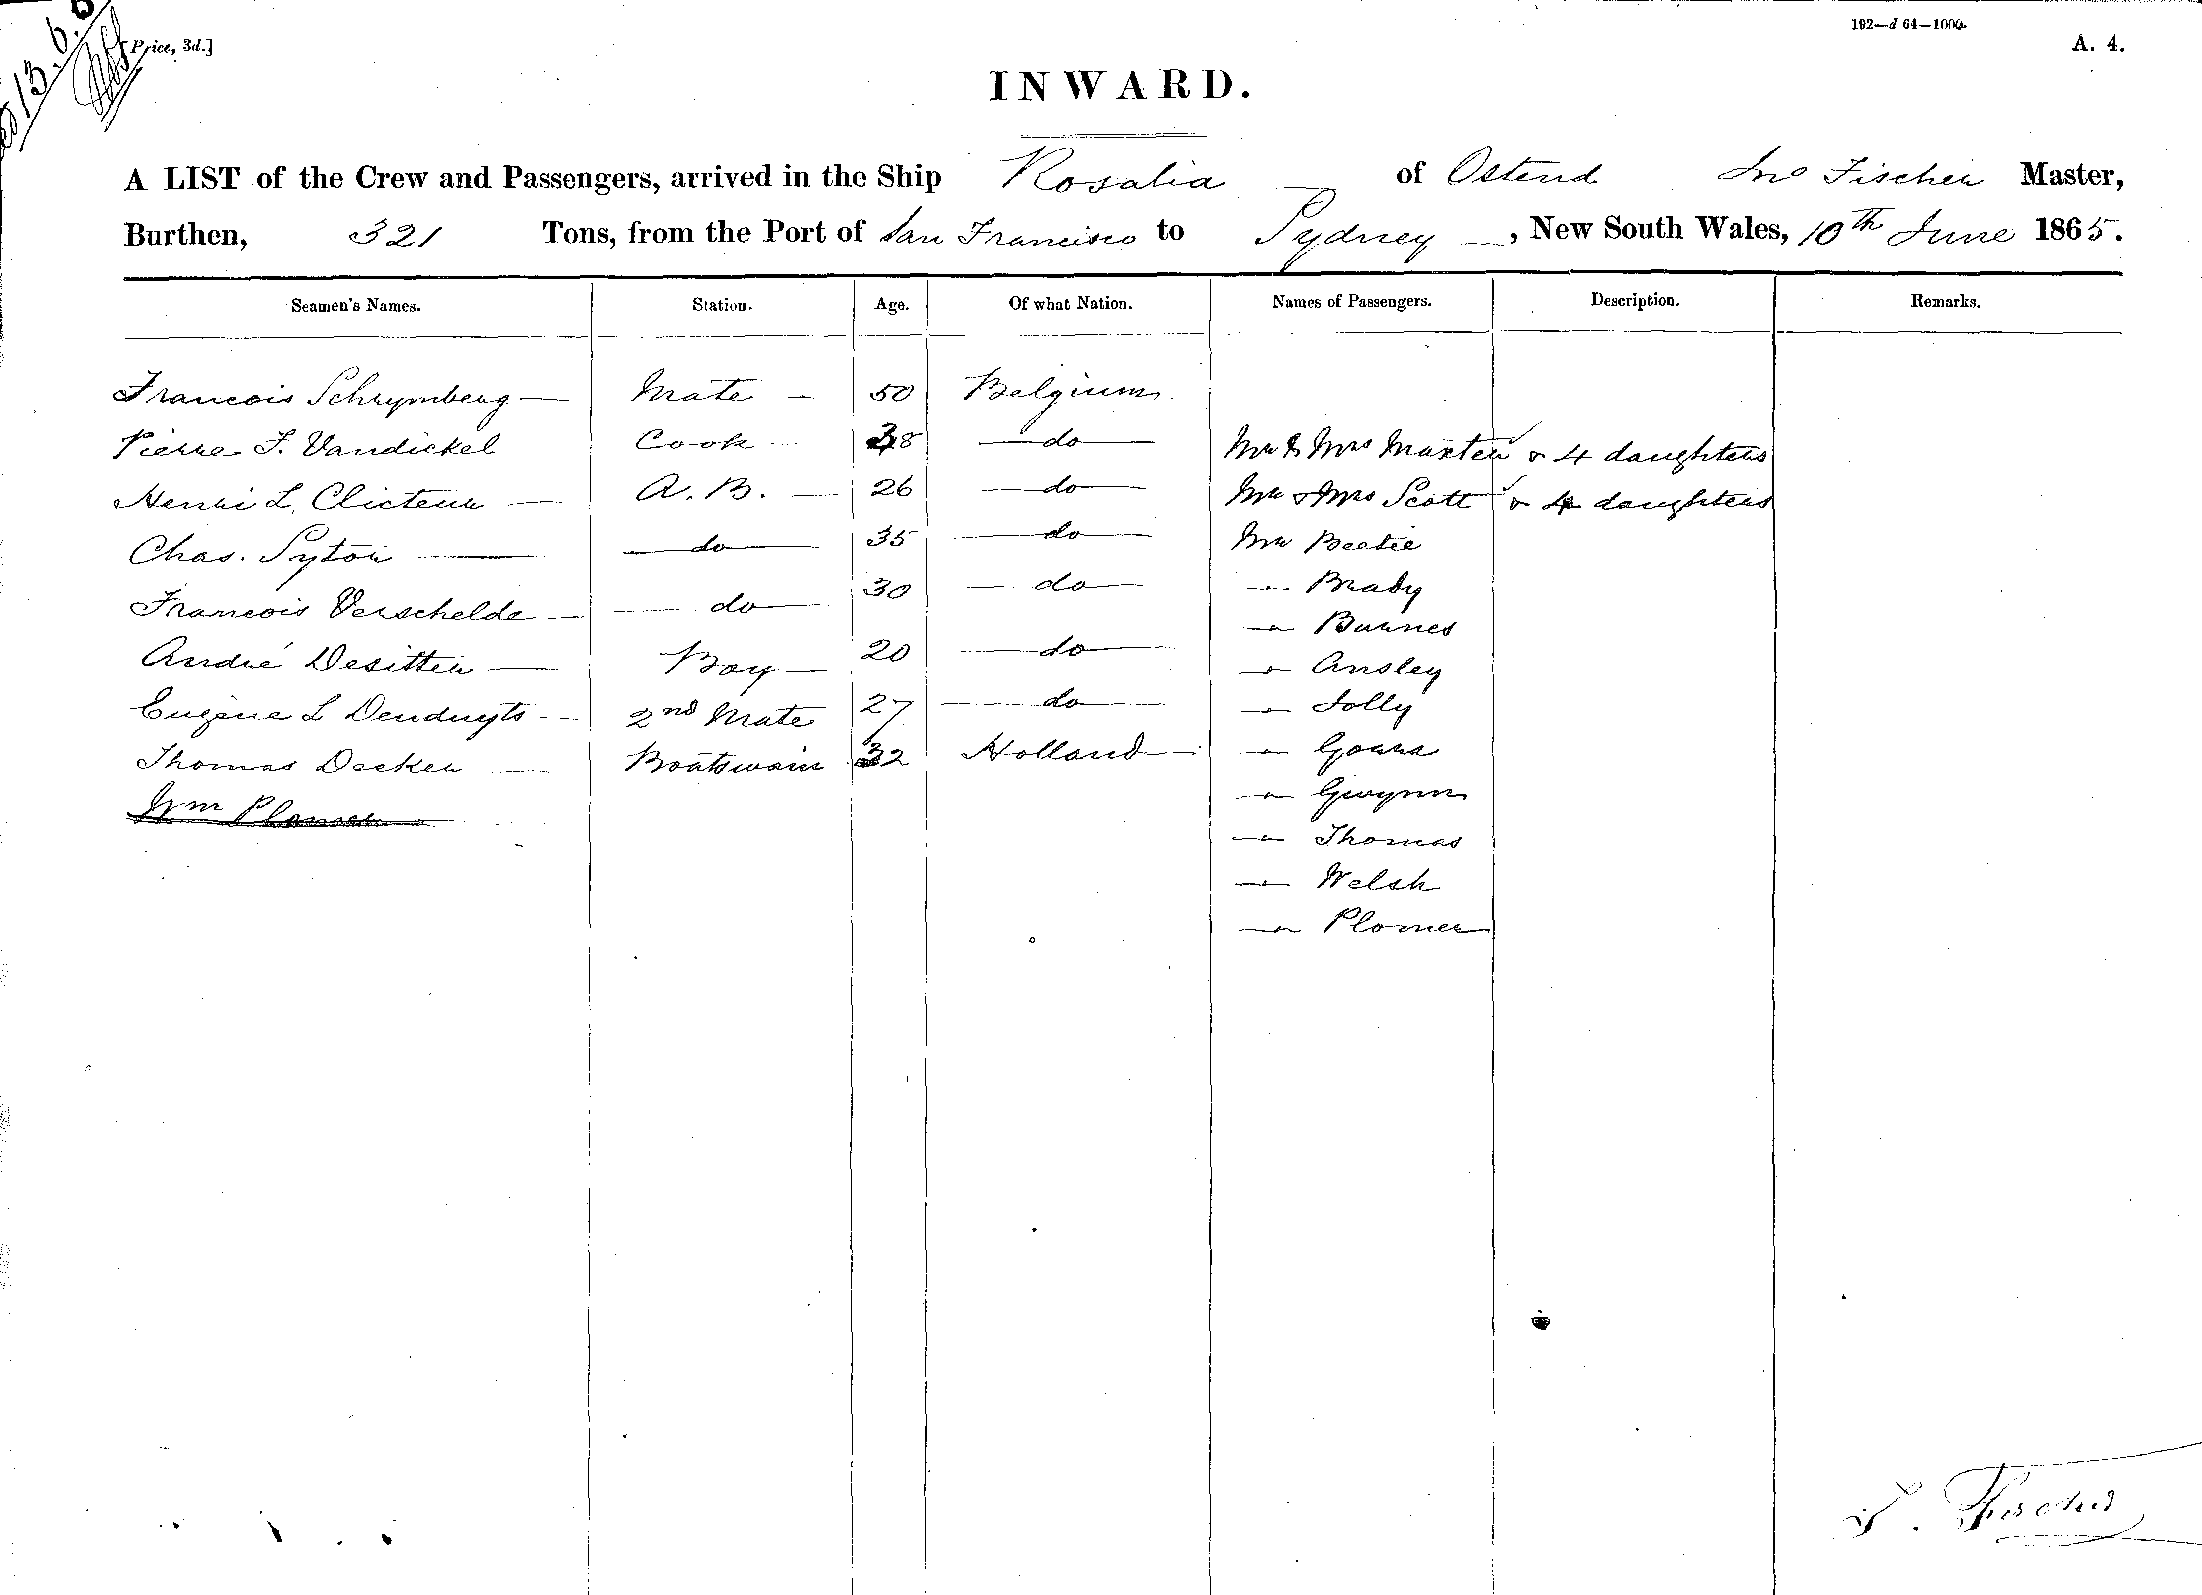 [Price, 3d.]
192—d 64—1000.
A. 4.
INWARD.
A LIST of the Crew and Passengers, arrived in the Ship Rosalia of Ostend Jno Fischer Master,
Burthen, 321 Tons, from the Port of San Francisco to Sydney, New South Wales, 10th June 1865.
Seamen's Names. Station. Age. Of what Nation. Names of Passengers. Description. Remarks.
Francois Schrymberg — Mate — 50 Belgium
Pierre F. Vandickel Cook 38 — do —
Mr & Mrs Marten & 4 daughters
Henri L. Clicteur — A. B. — 26 — do —
Mr & Mrs Scott & 4 daughters
Chas. Sytor — do — 35 — do —
Mr Beetie
Francois Verschelde — do — 30 — do —
" Brady
" Burnes
André Desitter — Boy — 20 — do —
" Ansley
Eugene L Denduyts - 2nd Mate 27 — do —
" Jolly
Thomas Decker — Boatswain 32 Holland —
" Goura
Wm Plomer
" Gwynn
" Thomas
" Welsh
" Plomer
J. Fischer